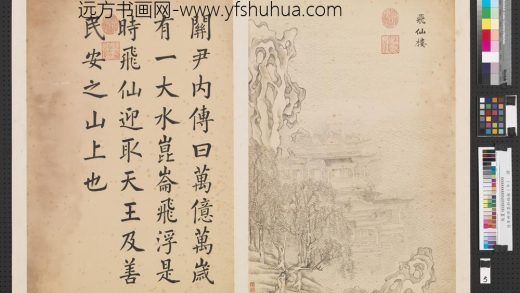 远方书画网-www.yfshuhua.com
關尹内傳曰萬億萬歲
有一大水崑崙飛浮是
時飛仙迎取天王及善
民安之山上也
飛仙樓